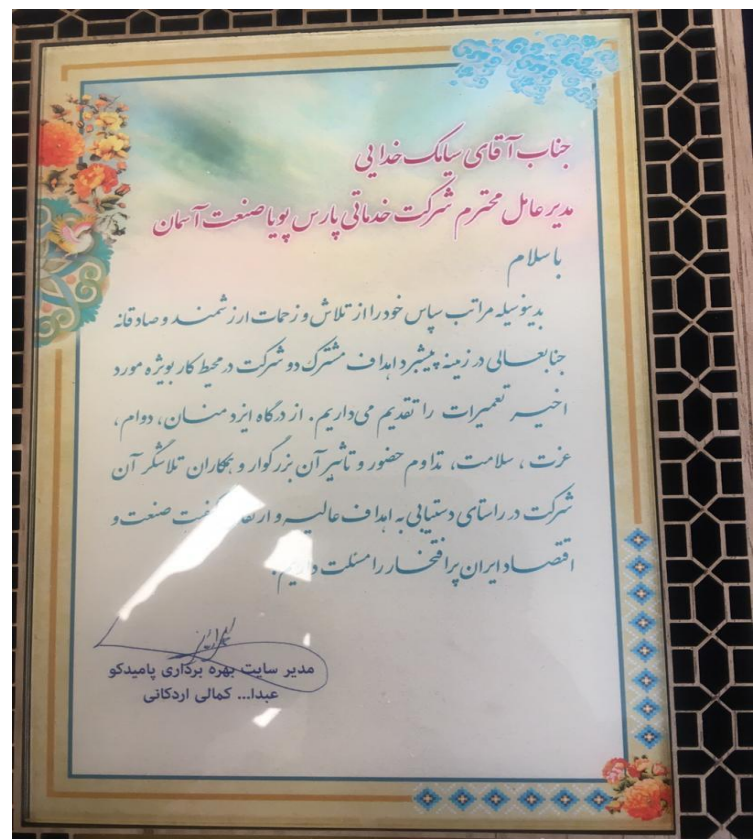 جناب آقای سالک خدایی
مدیر عامل محترم شرکت خدماتی پارس پویا صنعت آسمان
با سلام
بدینوسیله مراتب سپاس خود را از تلاش و زحمات ارزشمند و صادقانه
جنابعالی در زمینه پیشبرد اهداف مشترک دو شرکت در محیط کار بویژه مورد
اخیر تعمیرات را تقدیم می‌داریم. از درگاه ایزد منان، دوام،
عزت، سلامت، تداوم حضور و تاثیر آن بزرگوار و همکاران تلاشگر آن
شرکت در راستای دستیابی به اهداف عالیه و ارتقاء کیفیت صنعت و
اقتصاد ایران پرافتخار را مسئلت داریم.
مدیر سایت بهره برداری پامیدکو
عبدا... کمالی اردکانی